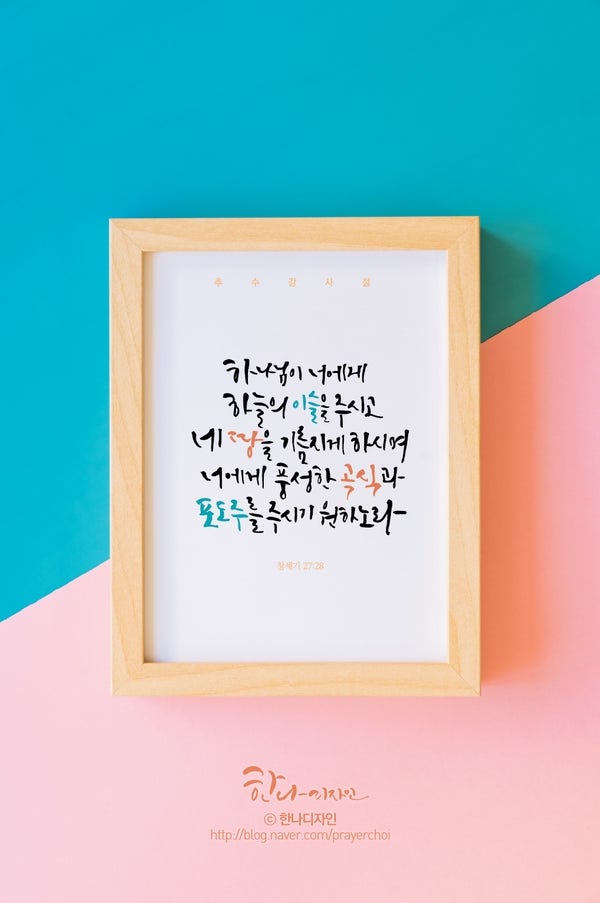 추수감사절
하나님이 너에게
하늘의 이슬을 주시고
네 땅을 기름지게 하시며
너에게 풍성한 곡식과
포도주를 주시기 원하노라
창세기 27:28
한나디자인
© 한나디자인
http://blog.naver.com/prayerchoi